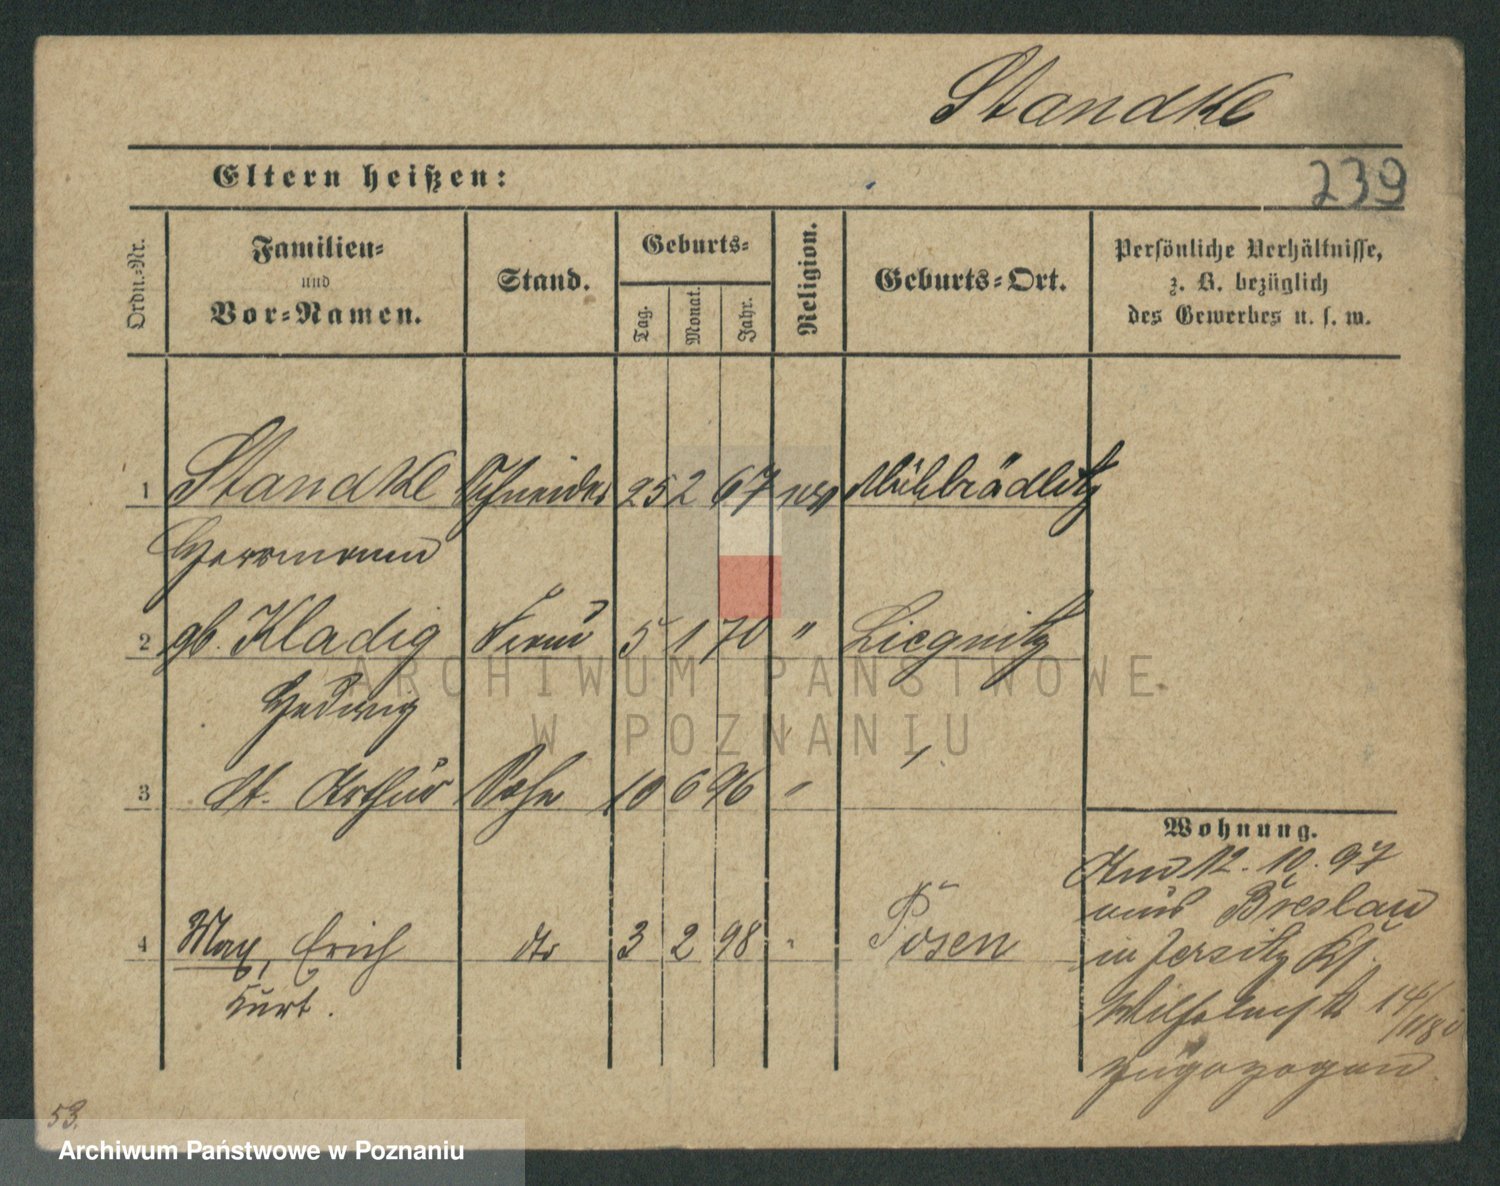 Standke
239
Eltern heißen:
Ordn.-Nr.
Familien-
und
Vor-Namen.
Stand.
Geburts-
Tag.
Monat.
Jahr.
Religion.
Geburts-Ort.
Persönliche Verhältnisse,
z. B. bezüglich
des Gewerbes u. s. w.
1 Standke Schneider 25 2 67 Mühlrädlitz
Herrmann
2 gb. Kladig Frau 5 1 70 " Liegnitz
Hedwig
3 St. Arthur Sohn 10 6 96 " "
4 Max, Erich dto 3 2 98 " Posen
Kurt.
Wohnung.
Am 12. 10. 97
aus Breslau
in Jersitz
zugezogen
53.
ARCHIWUM PAŃSTWOWE
W POZNANIU
Archiwum Państwowe w Poznaniu